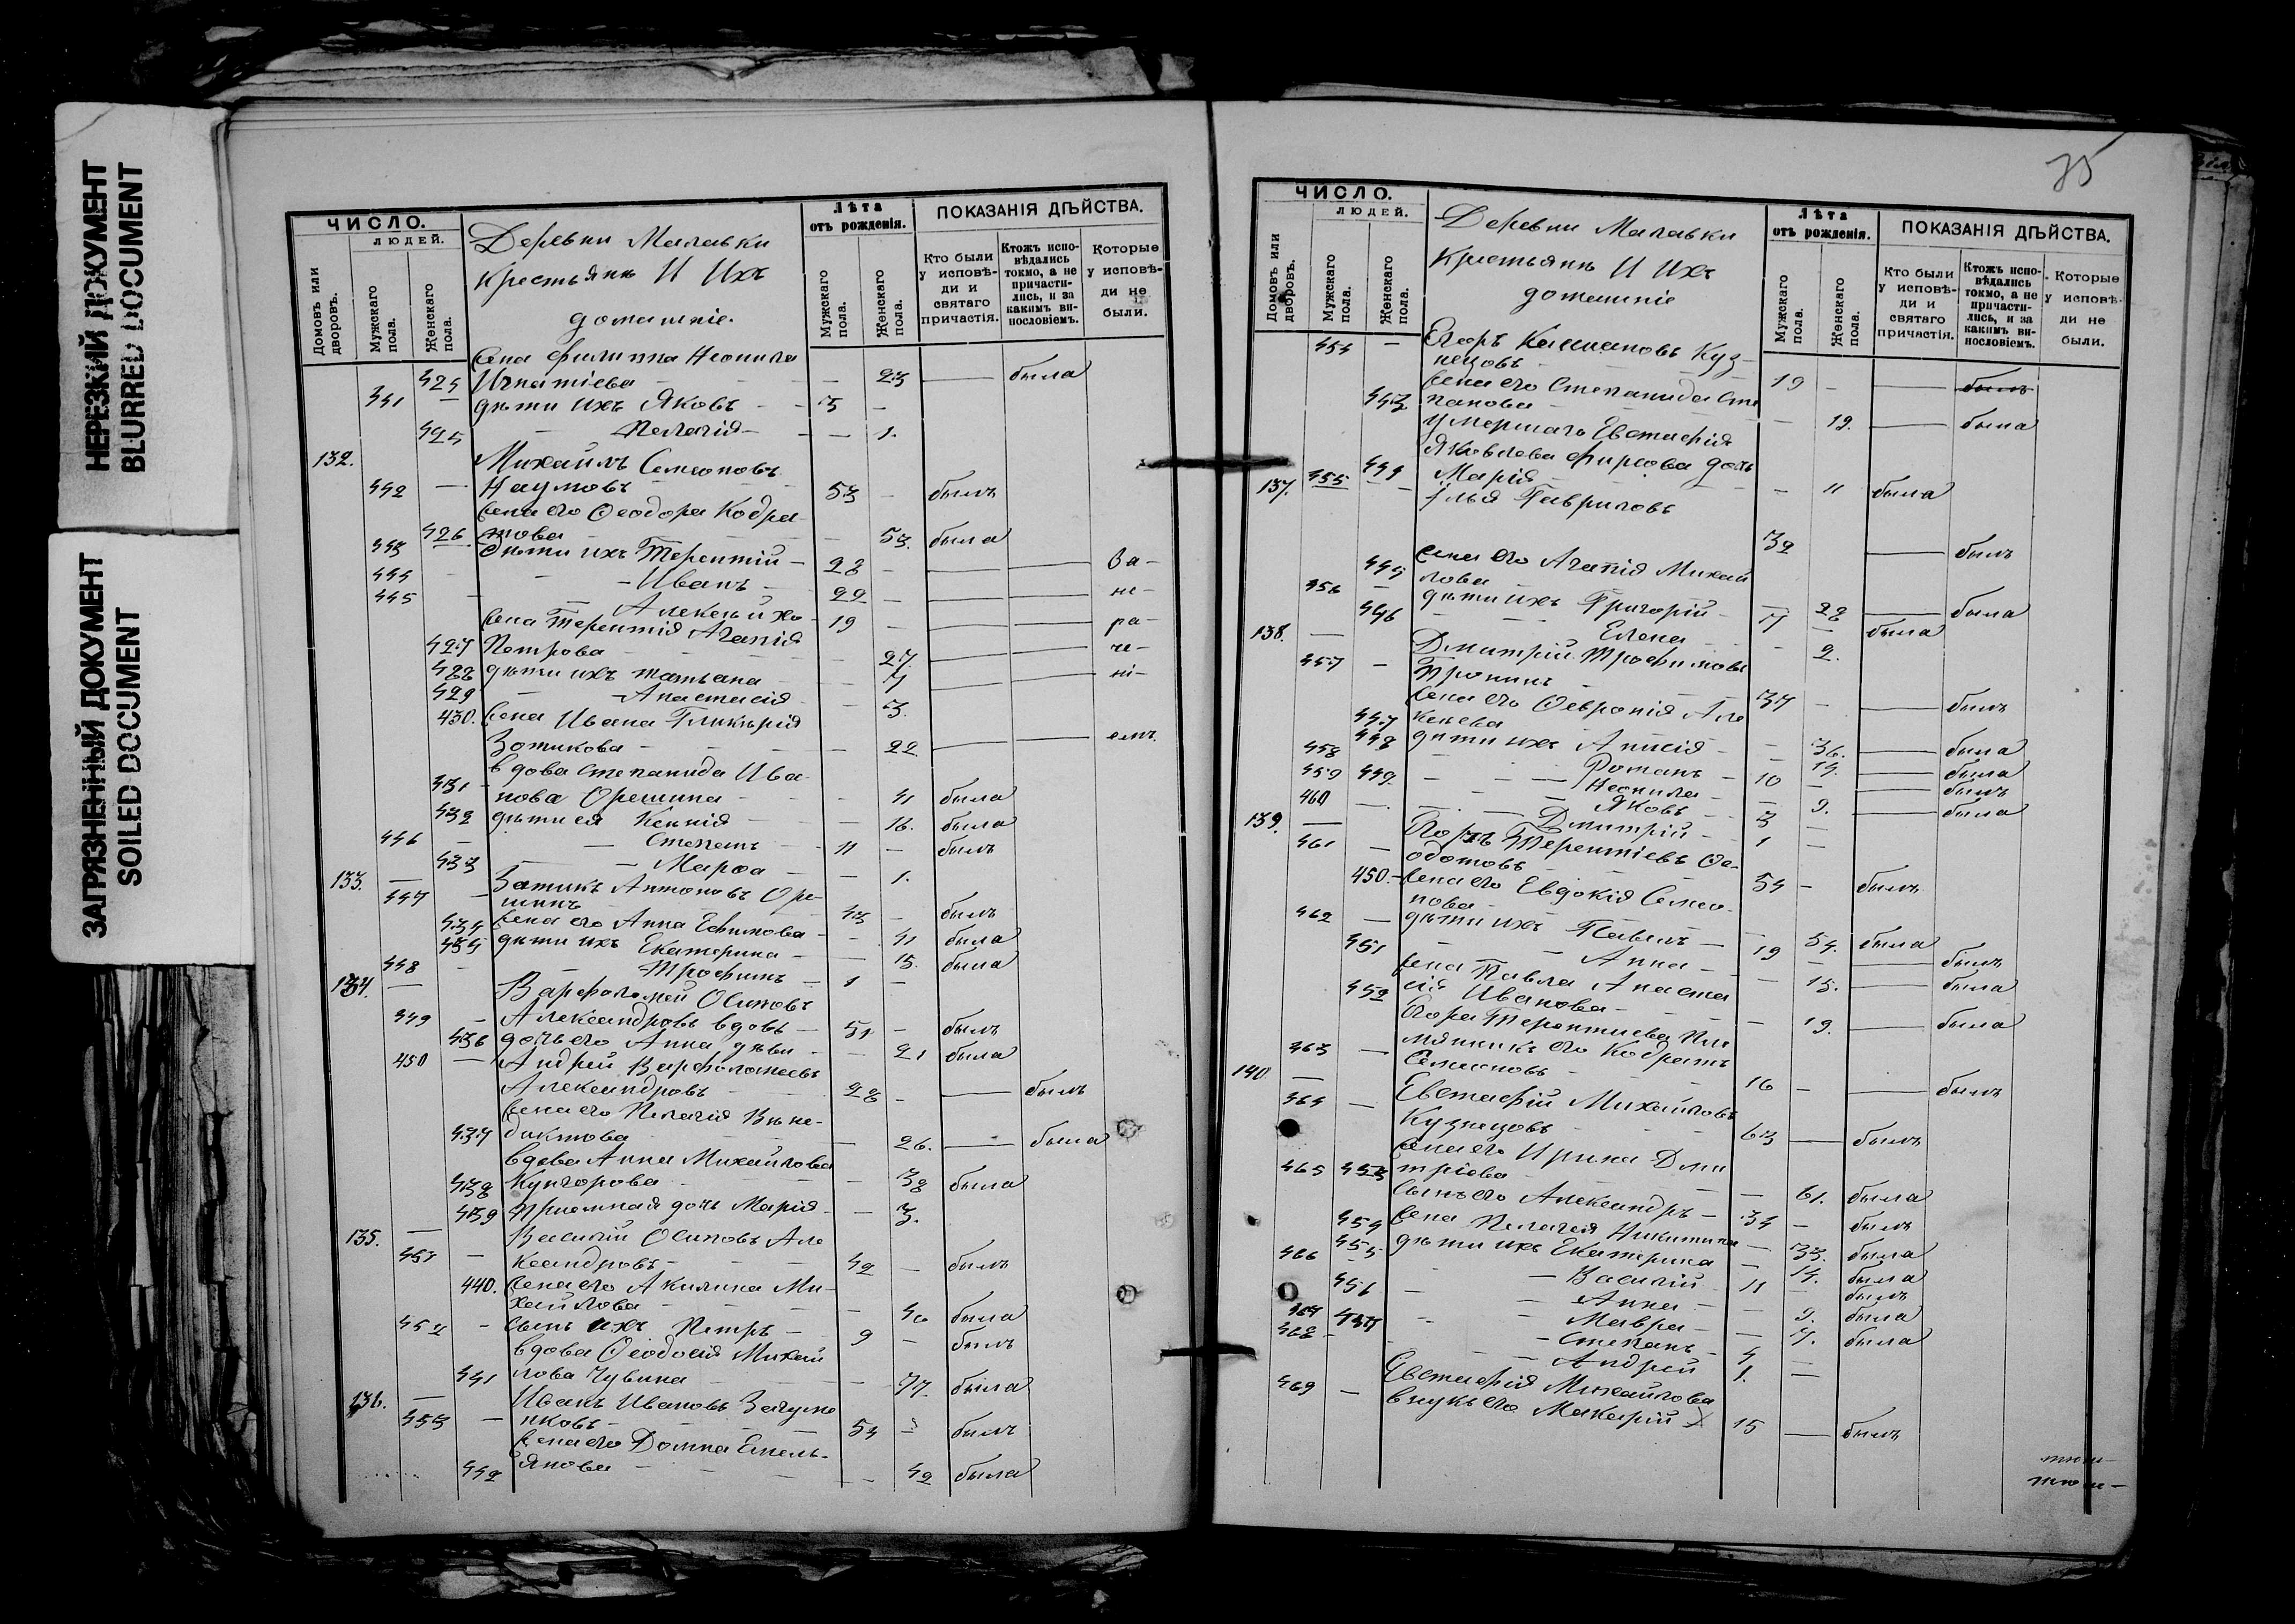 НЕРЕЗКИЙ ДОКУМЕНТ
BLURRED DOCUMENT
ЗАГРЯЗНЕННЫЙ ДОКУМЕНТ
SOILED DOCUMENT
ЧИСЛО.
ЛЮДЕЙ.
Домовъ или дворовъ.
Мужскаго пола.
Женскаго пола.
Деревни Малавки
Крестьяне И Ихъ
домашніе.
Лѣта отъ рожденія.
Мужскаго пола.
Женскаго пола.
ПОКАЗАНІЯ ДѢЙСТВА.
Кто были у исповѣди и святаго причастія.
Ктожъ исповѣдались токмо, а не причастились, и за какимъ винословіемъ.
Которые у исповѣди не были.
жена Филиппа Неонила
424 Игнатіева - 23 была
441 дѣти ихъ Яковъ 3
425 Пелагія 1.
132. Михаилъ Семеоновъ
442 Наумовъ 53 былъ
жена его Ѳеодора Кодра
426 това 53. была
443 дѣти ихъ Терентій 28 За-
444 Иванъ 22 не-
445 Алексѣй хо- 19 ра-
жена Терентія Агапія
427 Петрова 27. че-
428 дѣти ихъ Татьяна 7 ні-
429 Анастасія 3.
430. жена Ивана Гликерія
Зотикова 22 емъ.
вдова Степанида Ива
431 нова Орешина 41 была
432 дѣти ея Ксенія 16. была
446 Степанъ 11 былъ
433 Марѳа 1.
133. Затикъ Антоновъ Оре
447 шинъ 43 былъ
434 жена его Анна Ефимова 41 была
435 дѣти ихъ Екатерина 15. была
448 Трофимъ 1
134. Варфоломей Осиповъ
449 Александровъ вдовъ 51 былъ
436 дочь его Анна дѣви 21 была
450 Андрей Варфоломеевъ
Александровъ 28 былъ
жена его Пелагія Вене-
437 диктова 26. была
вдова Анна Михайлова
438 Кунгорова 38 была
439 пріемная дочь Марія 3.
135. Василій Осиповъ Але
451 ксандровъ 42 былъ
440. жена его Акилина Ми-
хайлова 40 была
452 сынъ ихъ Петръ 9 былъ
вдова Ѳеодосія Михай
441 лова Чувина 77. была
136. Иванъ Ивановъ Загуме
453 нковъ 54 былъ
жена его Домна Емель-
442 янова 42 была
75
ЧИСЛО.
ЛЮДЕЙ.
Домовъ или дворовъ.
Мужскаго пола.
Женскаго пола.
Деревни Малавки
Крестьянѣ И Ихъ
домашніе
Лѣта отъ рожденія.
Мужскаго пола.
Женскаго пола.
ПОКАЗАНІЯ ДѢЙСТВА.
Кто были у исповѣди и святаго причастія.
Ктожъ исповѣдались токмо, а не причастились, и за какимъ винословіемъ.
Которые у исповѣди не были.
454 Егоръ Касьяновъ Куз-
нецовъ 19 былъ
жена его Степанида Сте
443 панова 19. была
Умершаго Евстафія
Яковлева Фирсова дочь
444 Марія 11 была
137. 455 Илья Гавриловъ
32 былъ
жена его Агапія Михай
445 лова 28 была
456 дѣти ихъ Григорій 7 была
446 Елена 2.
138. Дмитрій Трофимовъ
457 Тронинъ 37 былъ
жена его Ѳевронія Але
447 ксеева 36. была
448 дѣти ихъ Анисія 14. была
458 Романъ 10 былъ
449. Неонила 9. была
459 Яковъ 3
460 Дмитрій 1
139. Егоръ Терентіевъ Ѳе-
461 одотовъ 54 былъ
450. жена его Евдокія Семео-
нова 54. была
462 дѣти ихъ Павелъ 19 былъ
451 Анна 15. была
жена Павла Анаста
452 сія Иванова 19. была
Егора Терентиева Пле
463 мянникъ его Кодратъ
Семеоновъ 16 былъ
140 Евстафій Михайловъ
464 Кузнецовъ 63 былъ
жена его Ирина Дми
453 тріева 61. была
465 сынъ его Александръ 34 былъ
454 жена Пелагея Никитина 33. была
455 дѣти ихъ Екатерина 14. была
466 Василій 11 былъ
456 Анна 9. была
Мавра 7. была
467 Степанъ 4
468 Андрей 1.
Евстафія Михайлова
469 внукъ его Макарій 15 былъ